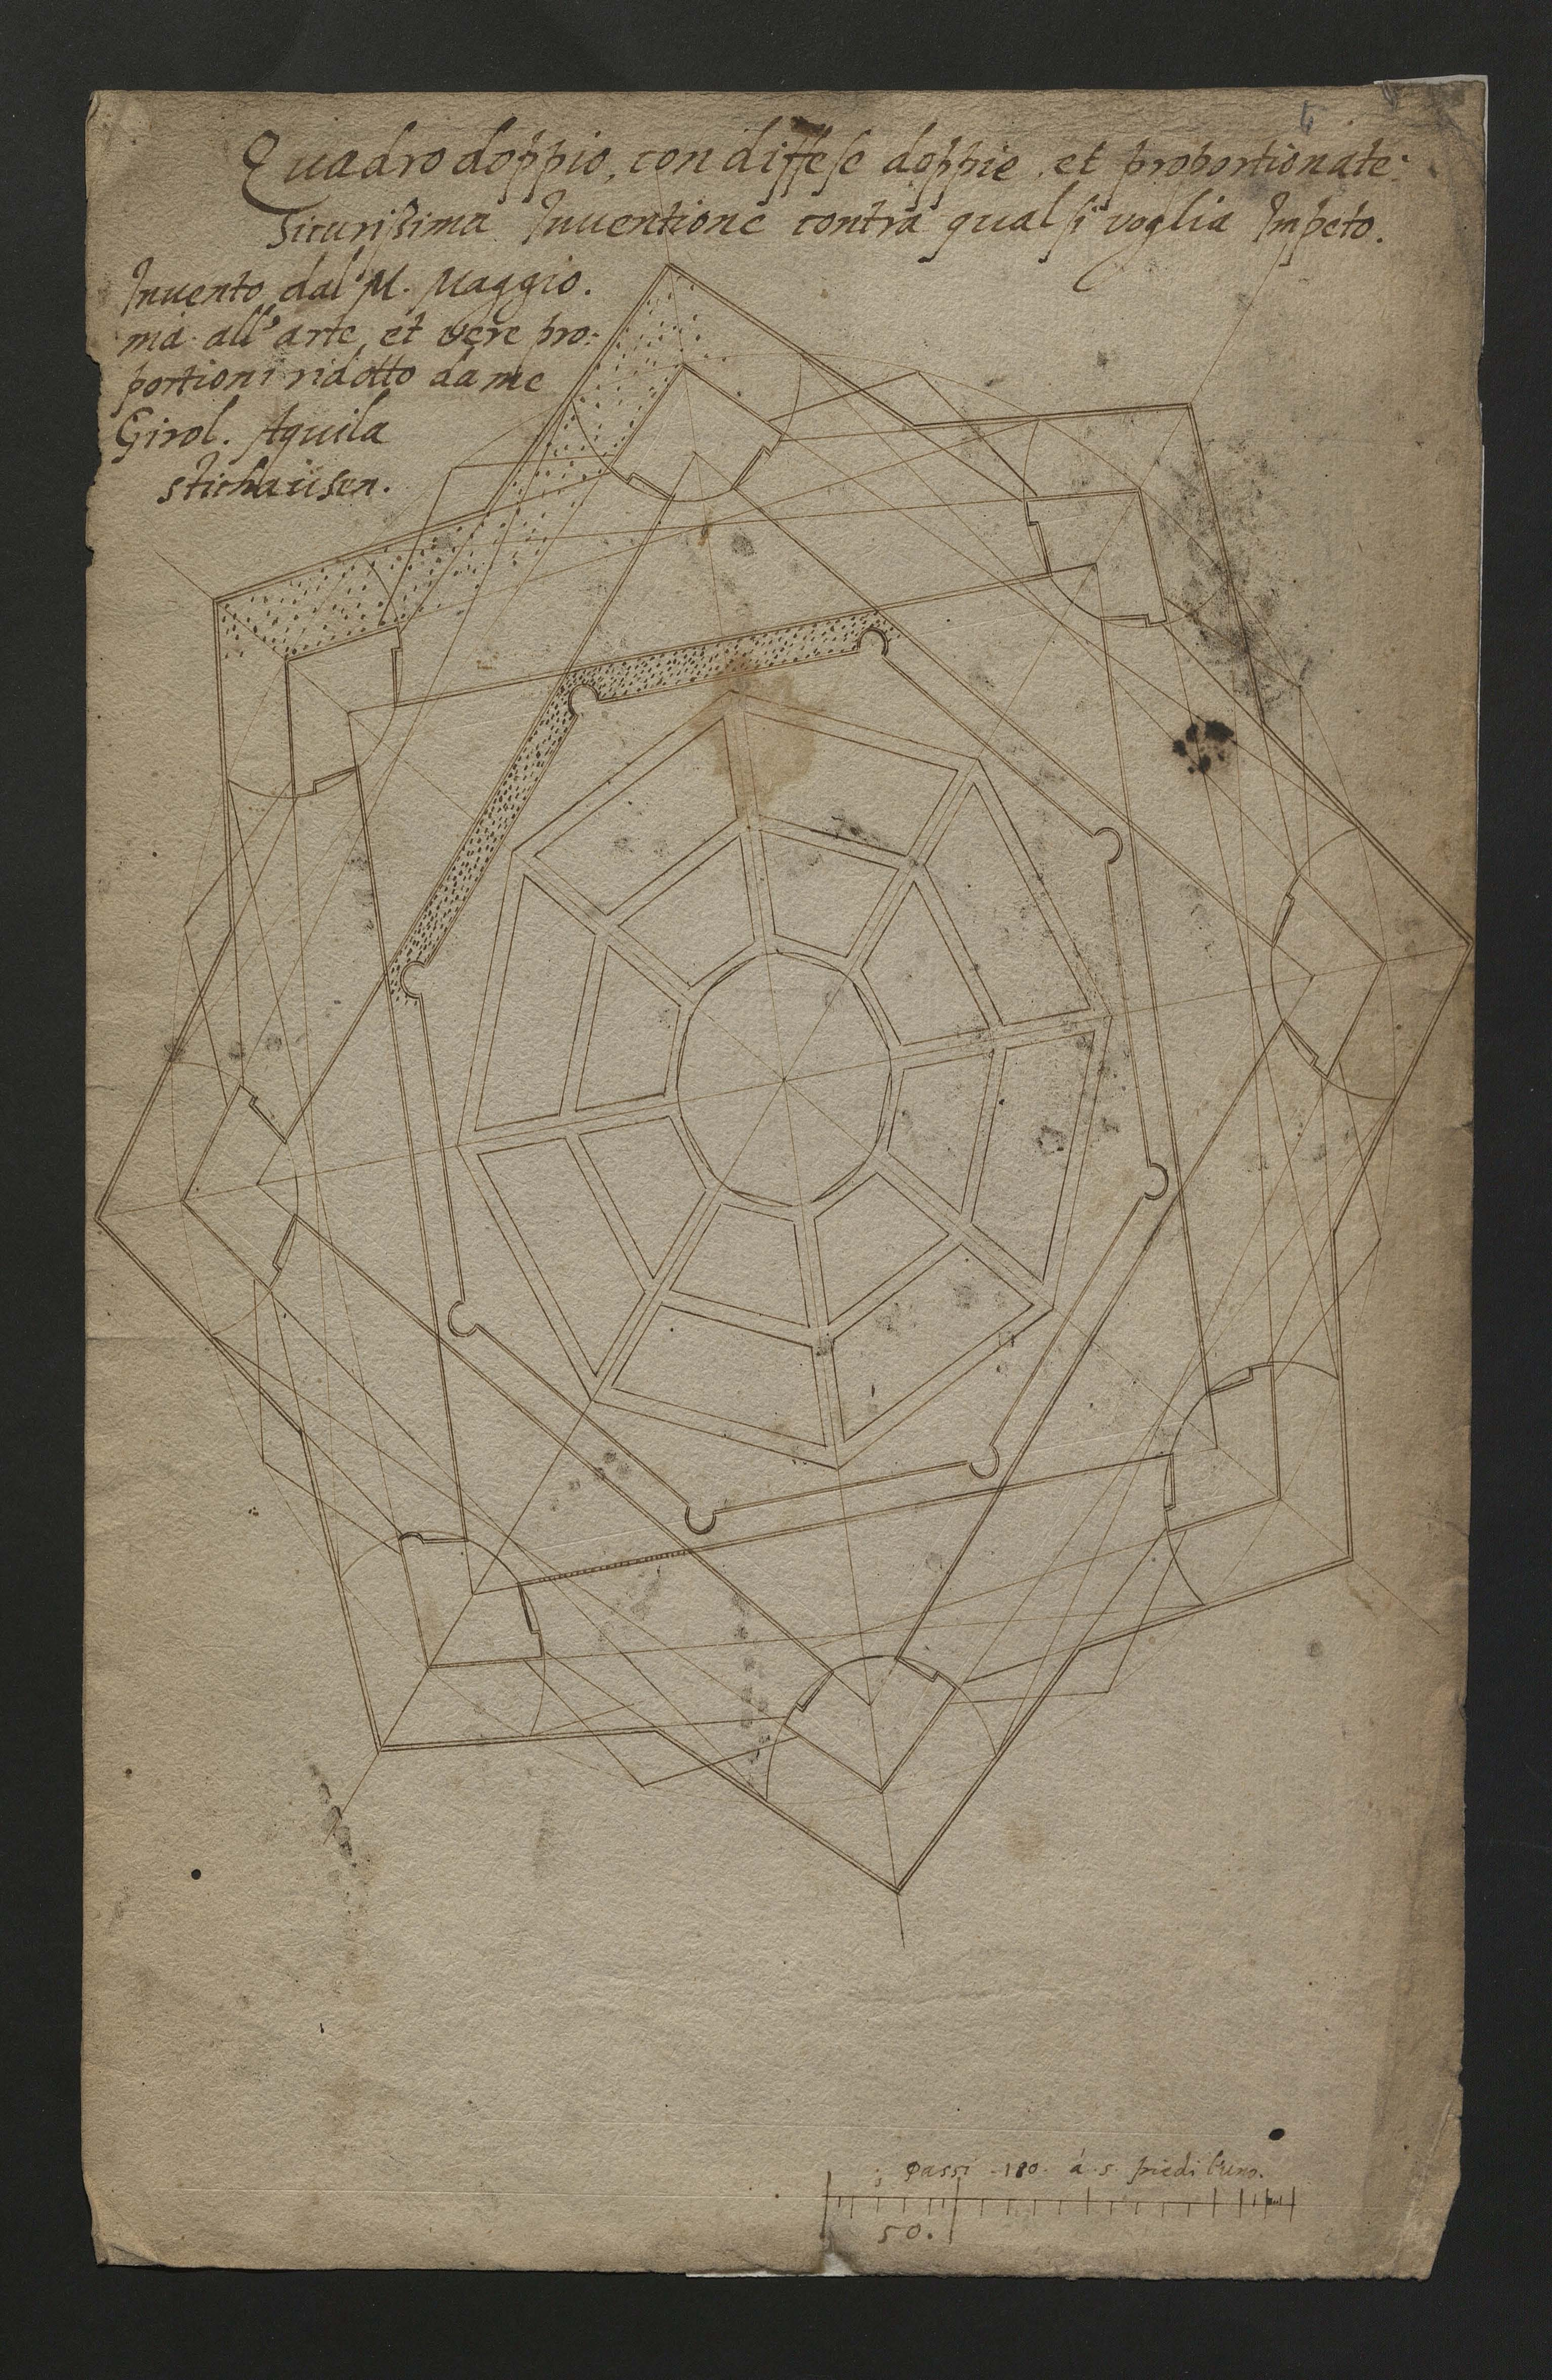 Quadro doppio, con diffese doppie, et proportionate:
Sicurissima Inventione contra qual si voglia Impeto.
Invento dal M. Maggio.
mà all'arte, et vere pro:
portioni ridotto da me
Girol. Aquila
Stichaüsen.
passi 180. à 5. piedi l'uno.
50.